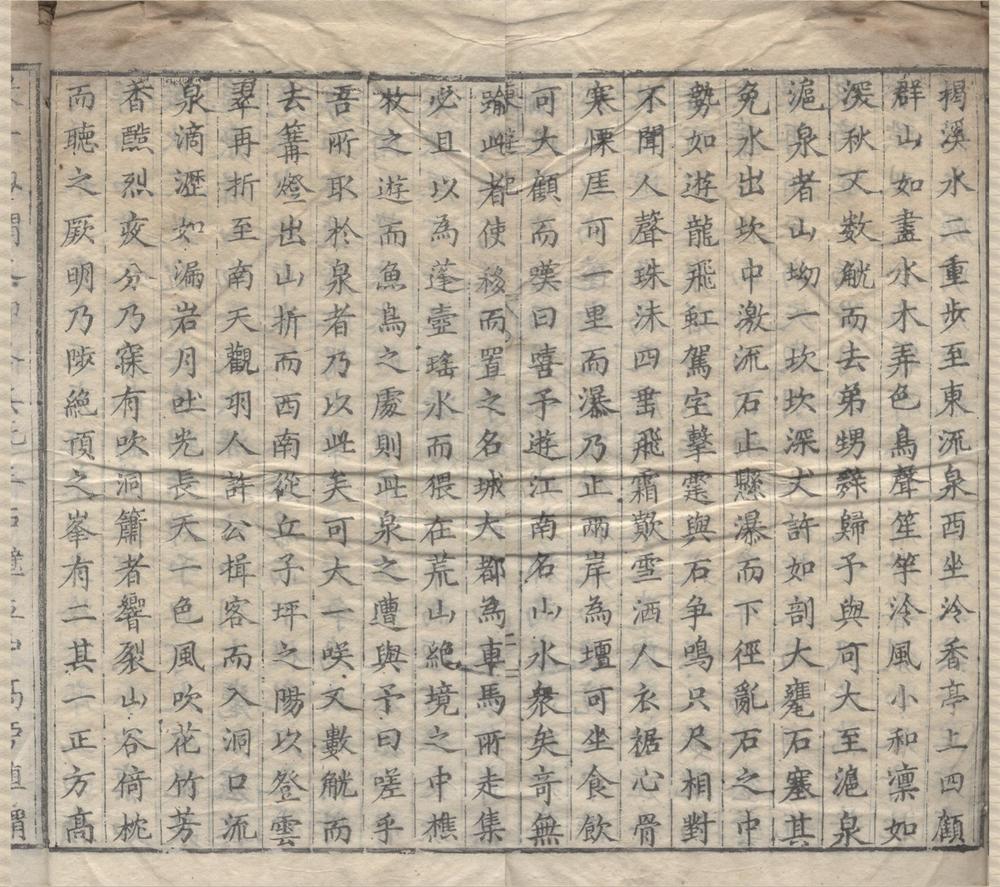 揭溪水二重步至東流泉西坐泠香亭上四顧
群山如畫水木弄色鳥聲笙竽泠風小和凛如
深秋又數觥而去弟甥辤歸予與可大至滬泉
滬泉者山坳一坎坎深丈許如剖大甕石塞其
兔水出坎中激流石止懸瀑而下徑亂石之中
勢如遊龍飛虹駕空擊霆與石争鳴只尺相對
不聞人聲珠沫四垂飛霜歕雪洒人衣裾心骨
寒慄厓可一里而瀑乃止兩岸為壇可坐食飲
可大顧而嘆曰嘻予遊江南名山水衆矣奇無
踰此者使移而置之名城大都為車馬所走集
必且以為蓬壺瑤水而猥在荒山絶境之中樵
牧之遊而魚鳥之處則此泉之遭與予曰嗟乎
吾所取於泉者乃以此矣可大一咲又數觥而
去篝燈出山折而西南從丘子坪之陽以登雲
翠再折至南天觀羽人許公揖客而入洞口流
泉滴瀝如漏岩月吐光長天一色風吹花竹芳
香酷烈夜分乃寐有吹洞簫者響裂山谷倚枕
而聴之厥明乃陟絶頂之峯有二其一正方高